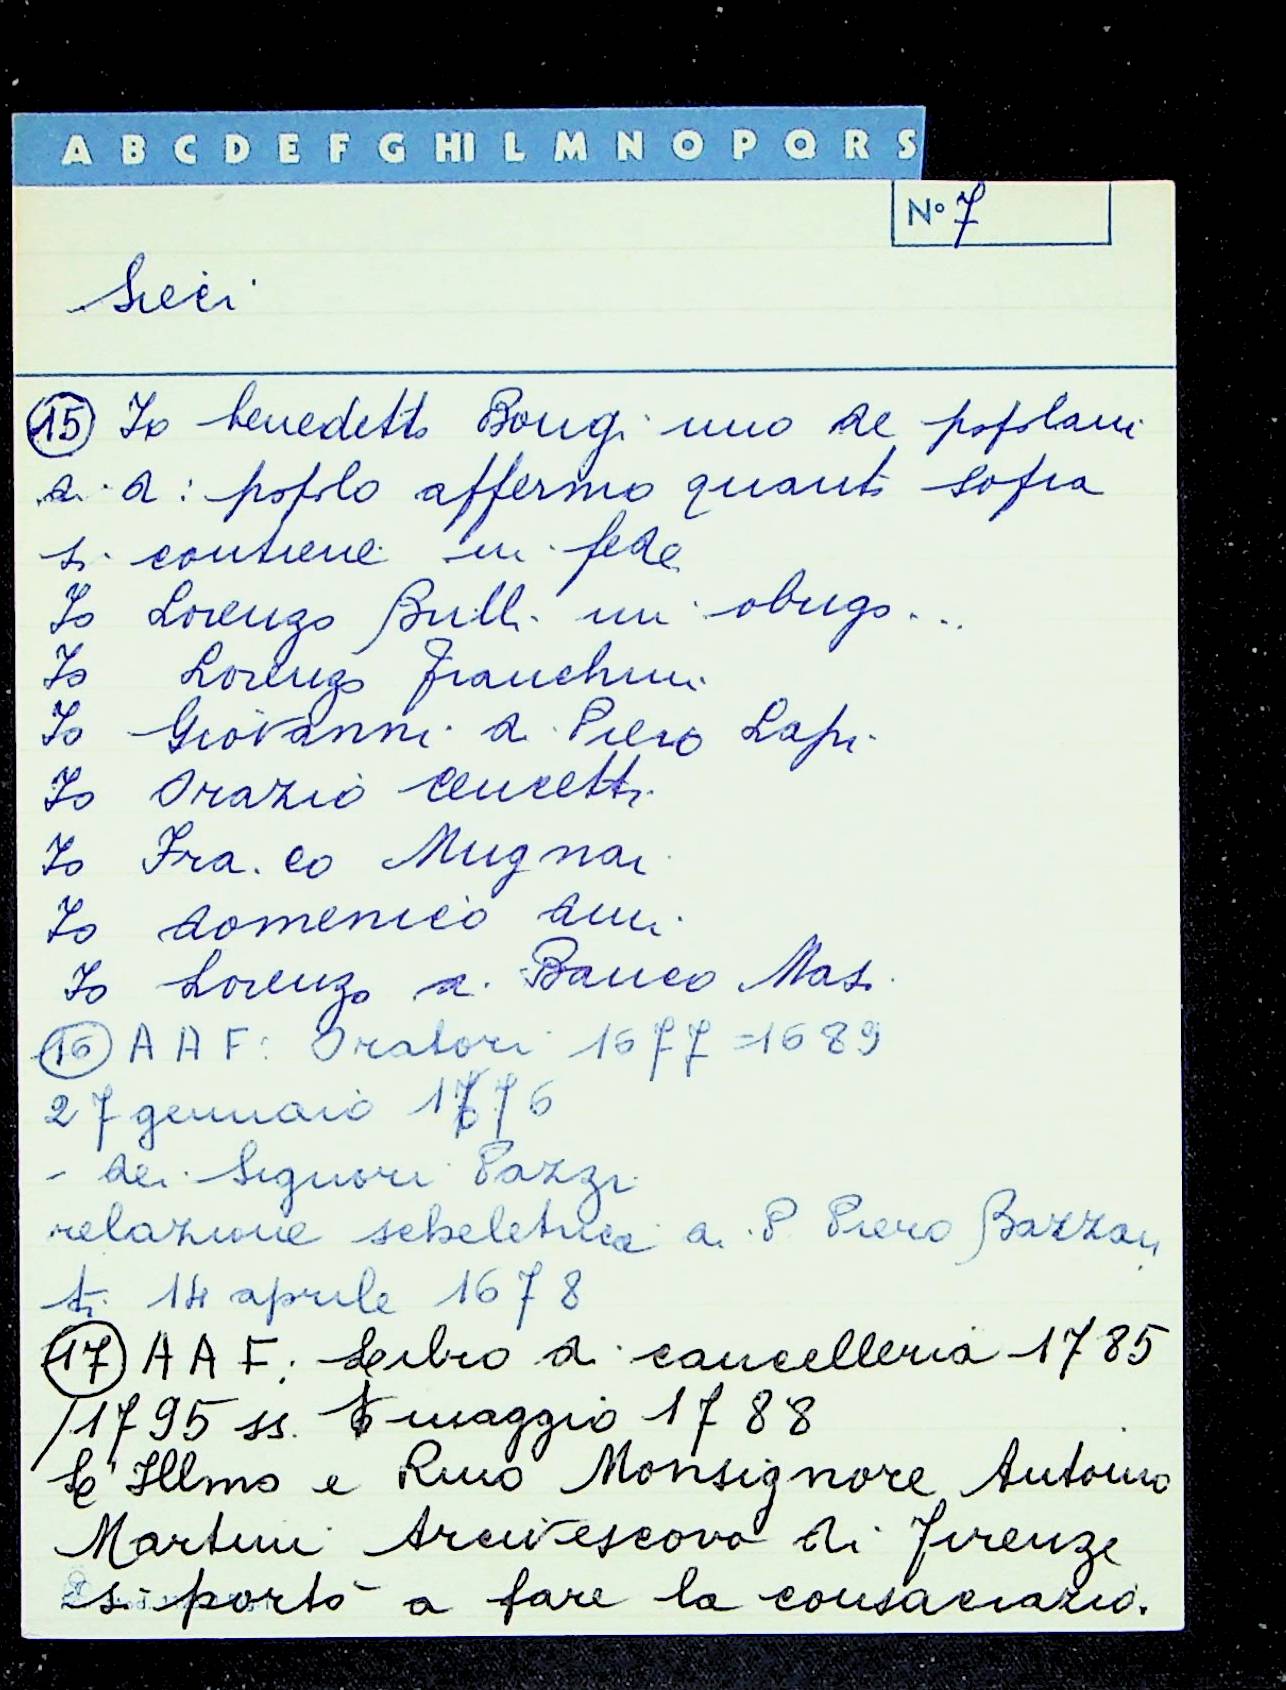 A B C D E F G HI L M N O P Q R S
N° 7
Sieci
15 Io benedetto Bongi uno de popolani
di d: popolo affermo quanto sopra
si contiene in fede
Io Lorenzo Bulli mi obrigo...
Io Lorenzo Franchini
Io Giovanni di Piero Lapi
Io Orazio Cencetti
Io Fra.co Mugnai
Io domenico
Io Lorenzo di Banco Masi
16 A A F: Oratori 1677=1689
27 gennaio 1676
- dei Signori Pazzi
relazione scheletrica di P. Piero Bazzan
ti 14 aprile 1678
17 A A F: Libro di cancelleria 1785
/1795 ss. 6 maggio 1788
L'Illmo e Rmo Monsignore Antonio
Martini Arcivescovo di Firenze
si portò a fare la consacrazio.